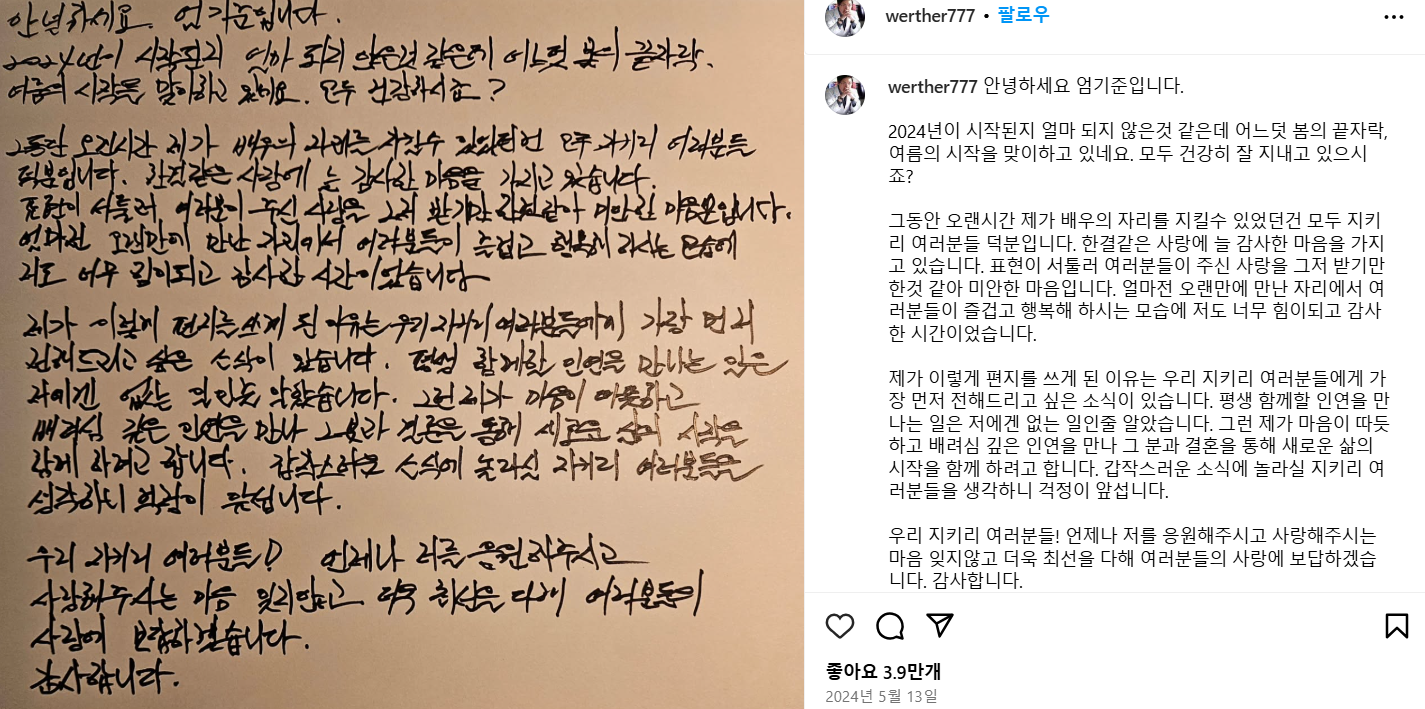 안녕하세요. 엄기준입니다.
2024년이 시작된지 얼마 되지 않은것 같은데 어느덧 봄의 끝자락,
여름의 시작을 맞이하고 있네요. 모두 건강하시죠?
그동안 오랜시간 제가 배우의 자리를 지킬수 있었던건 모두 지키리 여러분들
덕분입니다. 한결같은 사랑에 늘 감사한 마음을 가지고 있습니다.
표현이 서툴러 여러분이 주신 사랑을 그저 받기만 한것같아 미안한 마음뿐입니다.
얼마전 오랜만에 만난 자리에서 여러분들이 즐겁고 행복해 하시는 모습에
저도 너무 힘이되고 감사한 시간이었습니다
제가 이렇게 편지를 쓰게 된 이유는 우리 지키리 여러분들에게 가장 먼저
전해드리고 싶은 소식이 있습니다. 평생 함께할 인연을 만나는 일은
저에겐 없는 일인줄 알았습니다. 그런 제가 마음이 따뜻하고
배려심 깊은 인연을 만나 그분과 결혼을 통해 새로운 삶의 시작을
함께 하려고 합니다. 갑작스러운 소식에 놀라실 지키리 여러분들을
생각하니 걱정이 앞섭니다.
우리 지키리 여러분들! 언제나 저를 응원해주시고
사랑해주시는 마음 잊지않고 더욱 최선을 다해 여러분들의
사랑에 보답하겠습니다.
감사합니다.
werther777 • 팔로우
werther777 안녕하세요 엄기준입니다.
2024년이 시작된지 얼마 되지 않은것 같은데 어느덧 봄의 끝자락,
여름의 시작을 맞이하고 있네요. 모두 건강히 잘 지내고 있으시
죠?
그동안 오랜시간 제가 배우의 자리를 지킬수 있었던건 모두 지키
리 여러분들 덕분입니다. 한결같은 사랑에 늘 감사한 마음을 가지
고 있습니다. 표현이 서툴러 여러분들이 주신 사랑을 그저 받기만
한것 같아 미안한 마음입니다. 얼마전 오랜만에 만난 자리에서 여
러분들이 즐겁고 행복해 하시는 모습에 저도 너무 힘이되고 감사
한 시간이었습니다.
제가 이렇게 편지를 쓰게 된 이유는 우리 지키리 여러분들에게 가
장 먼저 전해드리고 싶은 소식이 있습니다. 평생 함께할 인연을 만
나는 일은 저에겐 없는 일인줄 알았습니다. 그런 제가 마음이 따듯
하고 배려심 깊은 인연을 만나 그 분과 결혼을 통해 새로운 삶의
시작을 함께 하려고 합니다. 갑작스러운 소식에 놀라실 지키리 여
러분들을 생각하니 걱정이 앞섭니다.
우리 지키리 여러분들! 언제나 저를 응원해주시고 사랑해주시는
마음 잊지않고 더욱 최선을 다해 여러분들의 사랑에 보답하겠습
니다. 감사합니다.
좋아요 3.9만개
2024년 5월 13일